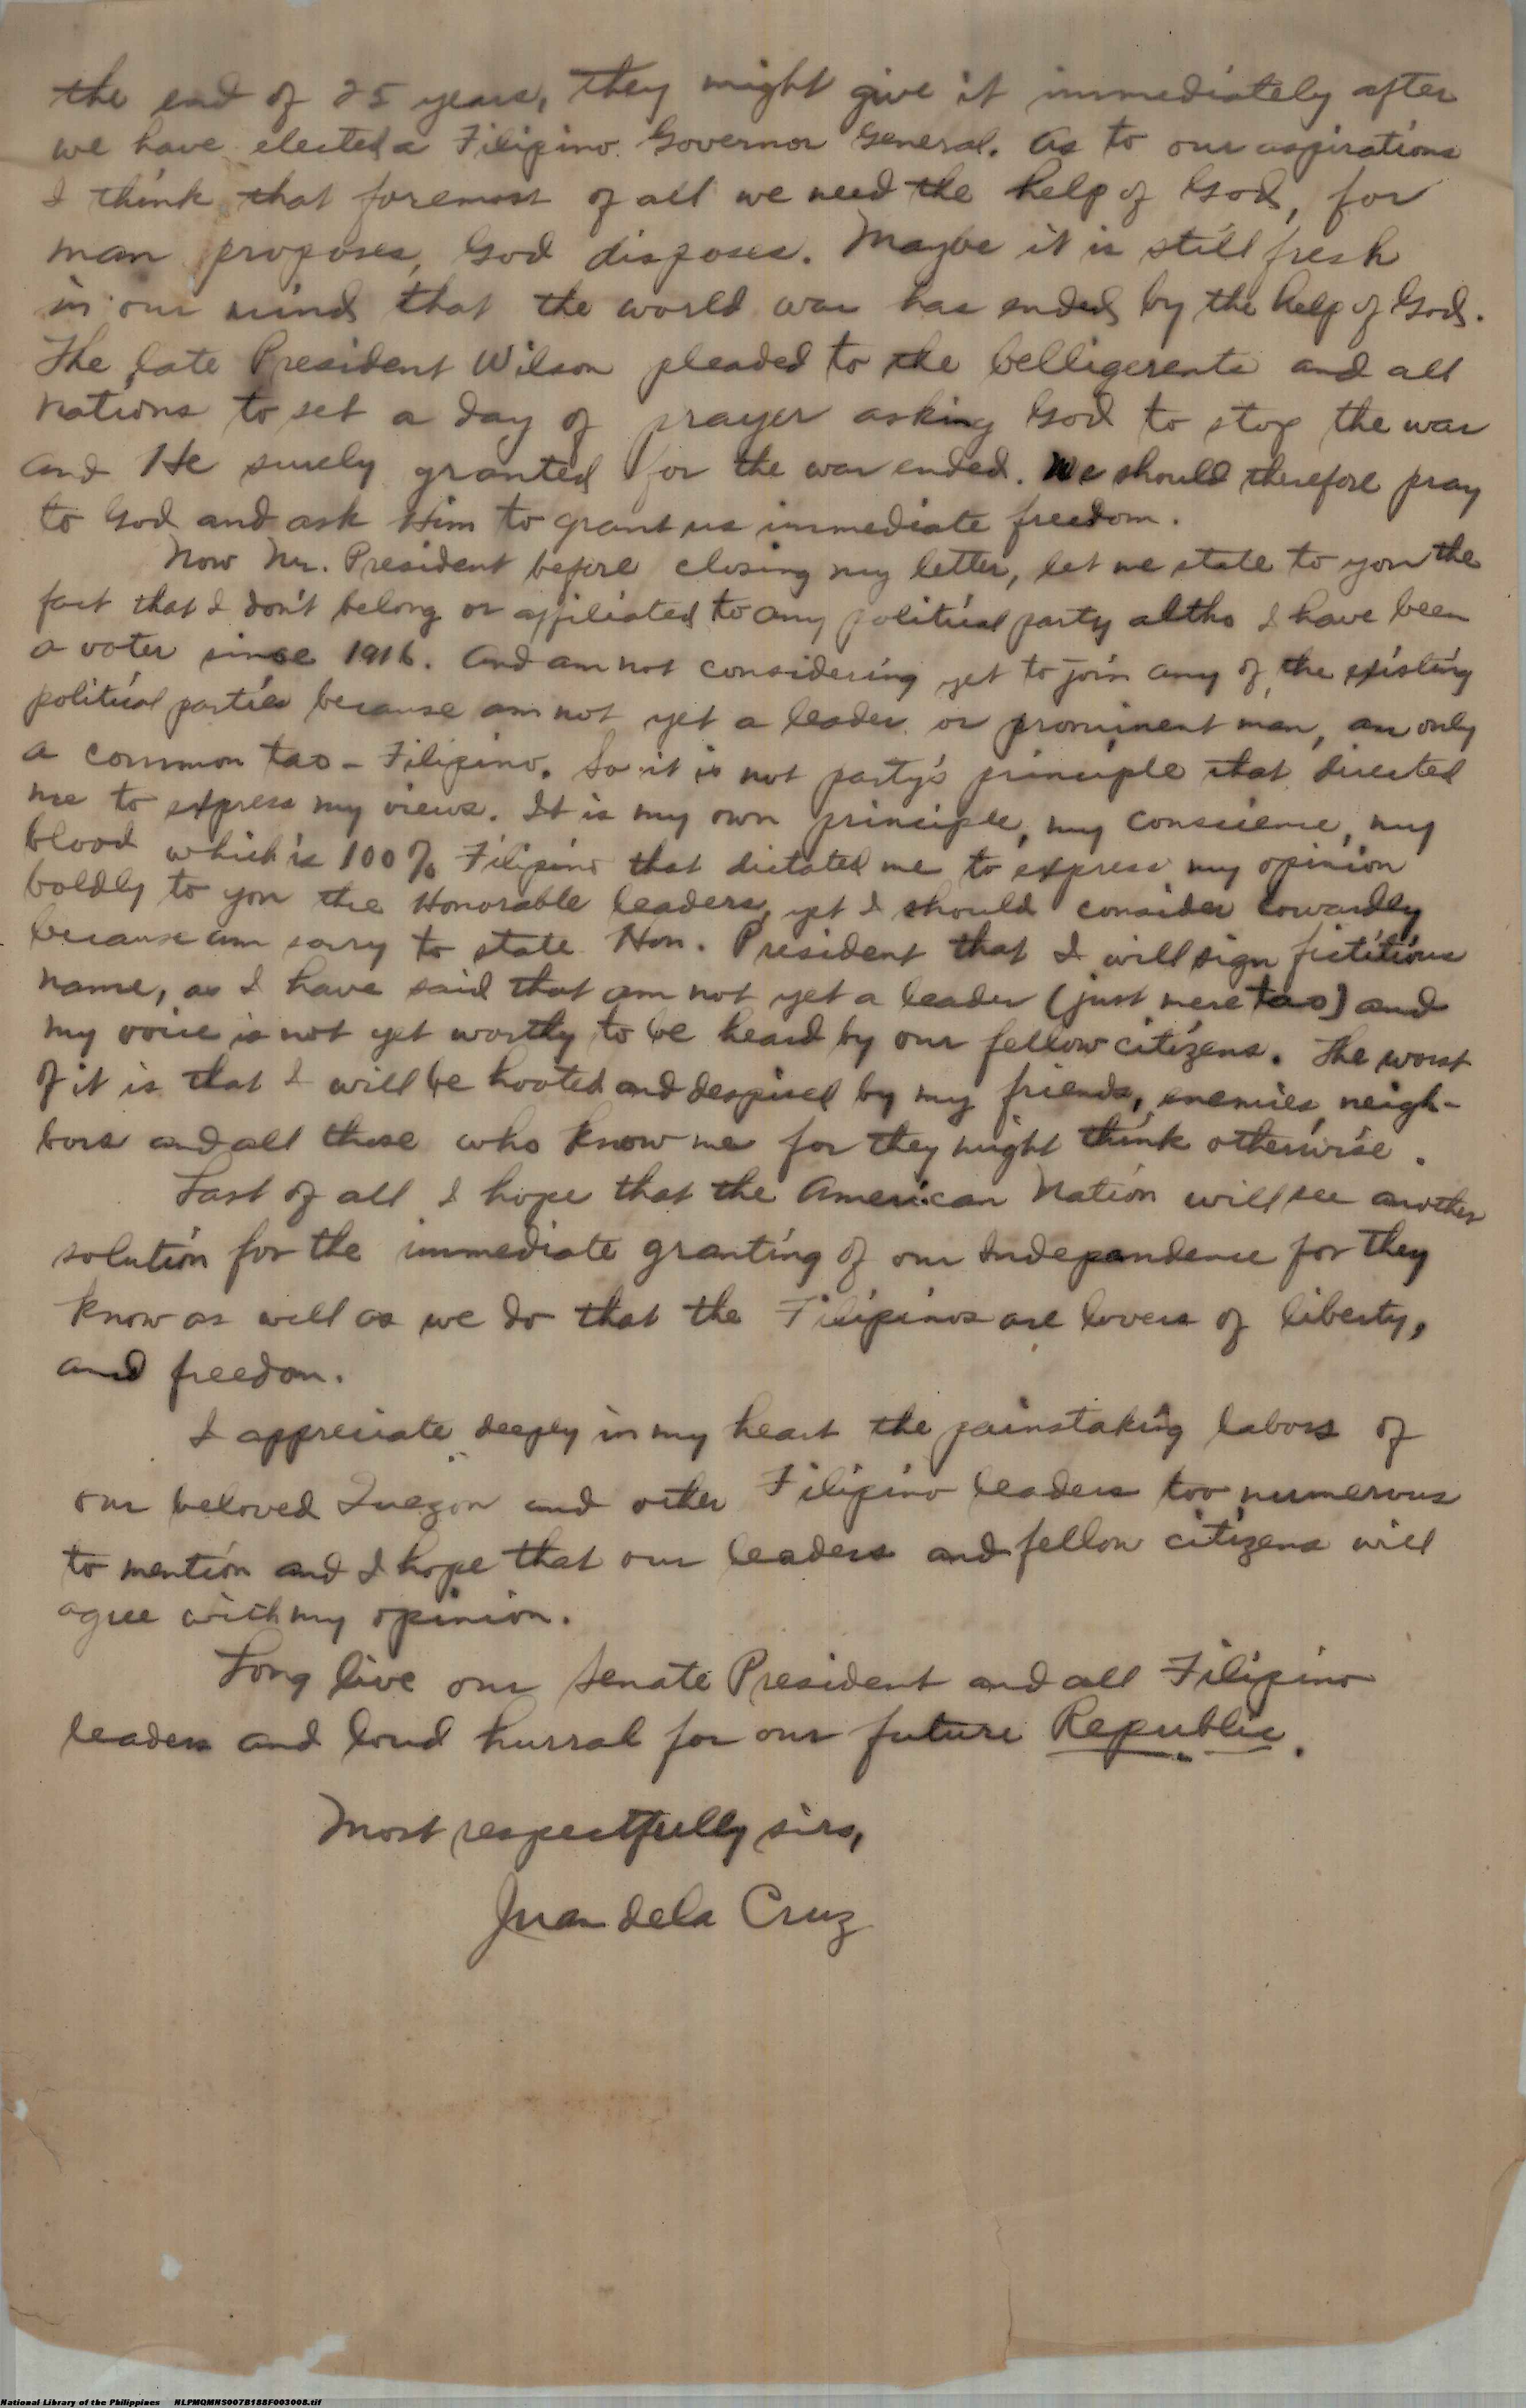 the end of 25 years, they might give it immediately after
we have elected a Filipino Governor General. As to our aspirations
I think that foremost of all we need the help of God, for
man proposes, God disposes. Maybe it is still fresh
in our mind that the world war has ended by the help of God.
The late President Wilson pleaded to the belligerents and all
nations to set a day of prayer asking God to stop the war
and He surely granted for the war ended. We should therefore pray
to God and ask Him to grant us immediate freedom.
Now Mr. President before closing my letter, let me state to you the
fact that I don't belong or affiliated to any political party altho I have been
a voter since 1916. And am not considering yet to join any of the existing
political parties because am not yet a leader or prominent man, am only
a common tao - Filipino. So it is not party's principle that directed
me to express my views. It is my own principle, my conscience, my
blood which is 100% Filipino that dictated me to express my opinion
boldly to you the Honorable leaders, yet I should consider cowardly
because am sorry to state Hon. President that I will sign fictitious
name, as I have said that am not yet a leader (just mere tao) and
my voice is not yet worthy to be heard by our fellow citizens. The worst
of it is that I will be hooted and despised by my friends, enemies, neigh-
bors and all those who know me for they might think otherwise.
Last of all I hope that the American Nation will see another
solution for the immediate granting of our Independence for they
know as well as we do that the Filipinos are lovers of liberty,
and freedom.
I appreciate deeply in my heart the painstaking labors of
our beloved Quezon and other Filipino leaders too numerous
to mention and I hope that our leaders and fellow citizens will
agree with my opinion.
Long live our Senate President and all Filipino
leaders and loud hurrah for our future Republic.
Most respectfully sirs,
Juan dela Cruz
National Library of the Philippines NLPMQMNS007B188F003008.tif